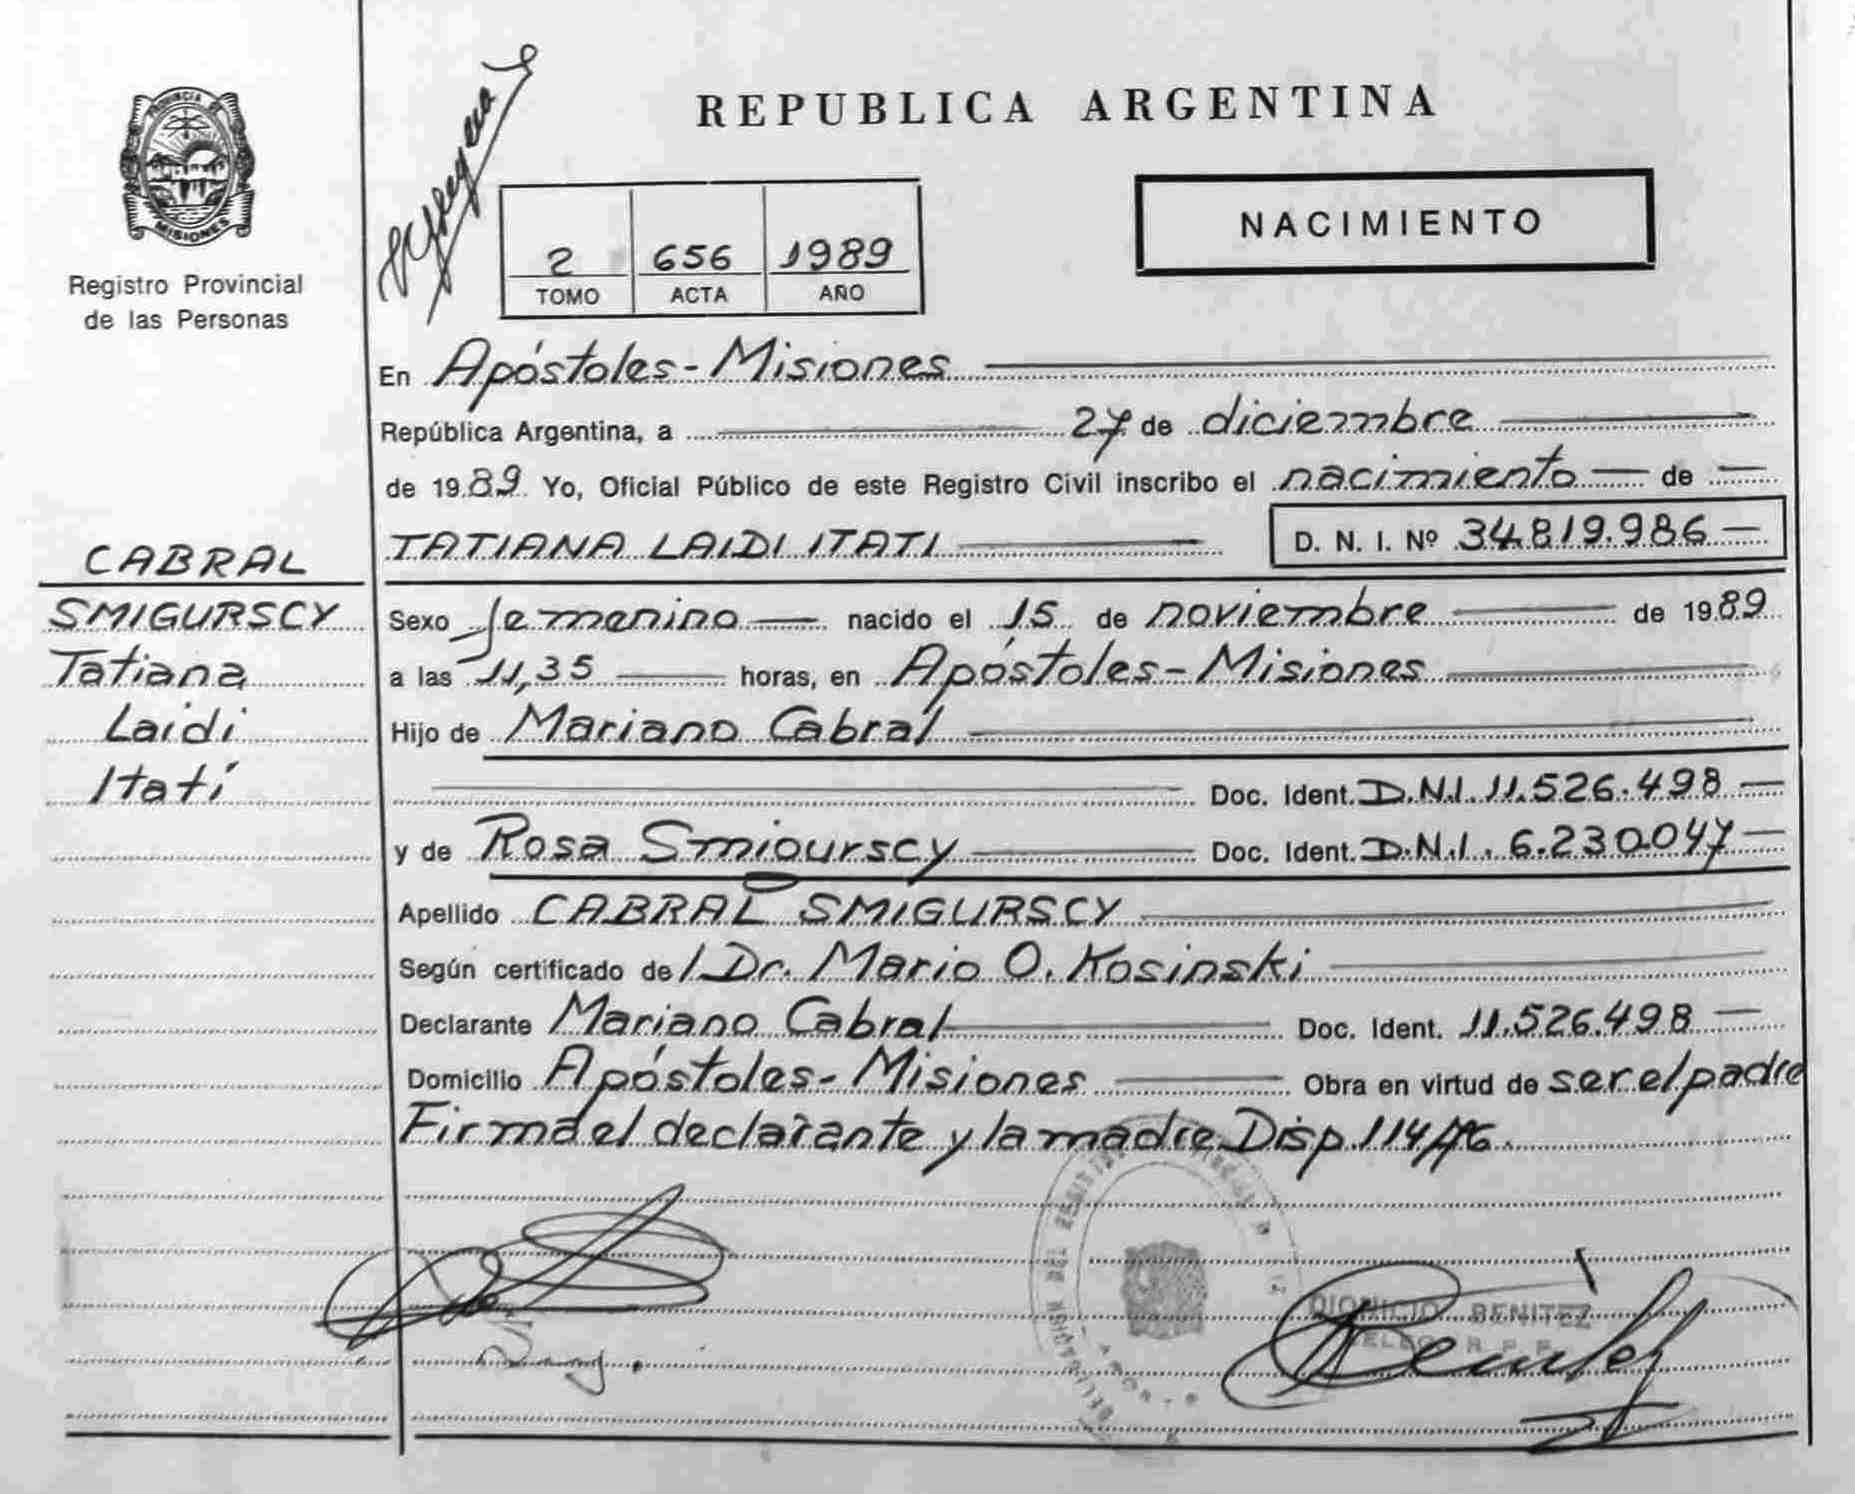 PROVINCIA DE
MISIONES
Registro Provincial
de las Personas
REPUBLICA ARGENTINA
NACIMIENTO
2 656 1989
TOMO ACTA AÑO
En Apóstoles-Misiones
República Argentina, a 27 de diciembre
de 1989 Yo, Oficial Público de este Registro Civil inscribo el nacimiento de
TATIANA LAIDI ITATI D. N. I. Nº 34.819.986
CABRAL
SMIGURSCY
Tatiana
Laidi
Itatí
Sexo femenino nacido el 15 de noviembre de 1989
a las 11,35 horas, en Apóstoles-Misiones
Hijo de Mariano Cabral
Doc. Ident. D.N.I. 11.526.498
y de Rosa Smigurscy Doc. Ident. D.N.I. 6.230.047
Apellido CABRAL SMIGURSCY
Según certificado de / Dr. Mario O. Kosinski
Declarante Mariano Cabral Doc. Ident. 11.526.498
Domicilio Apóstoles-Misiones Obra en virtud de ser el padre
Firma el declarante y la madre Disp. 114/76.
DIONICIO BENITEZ